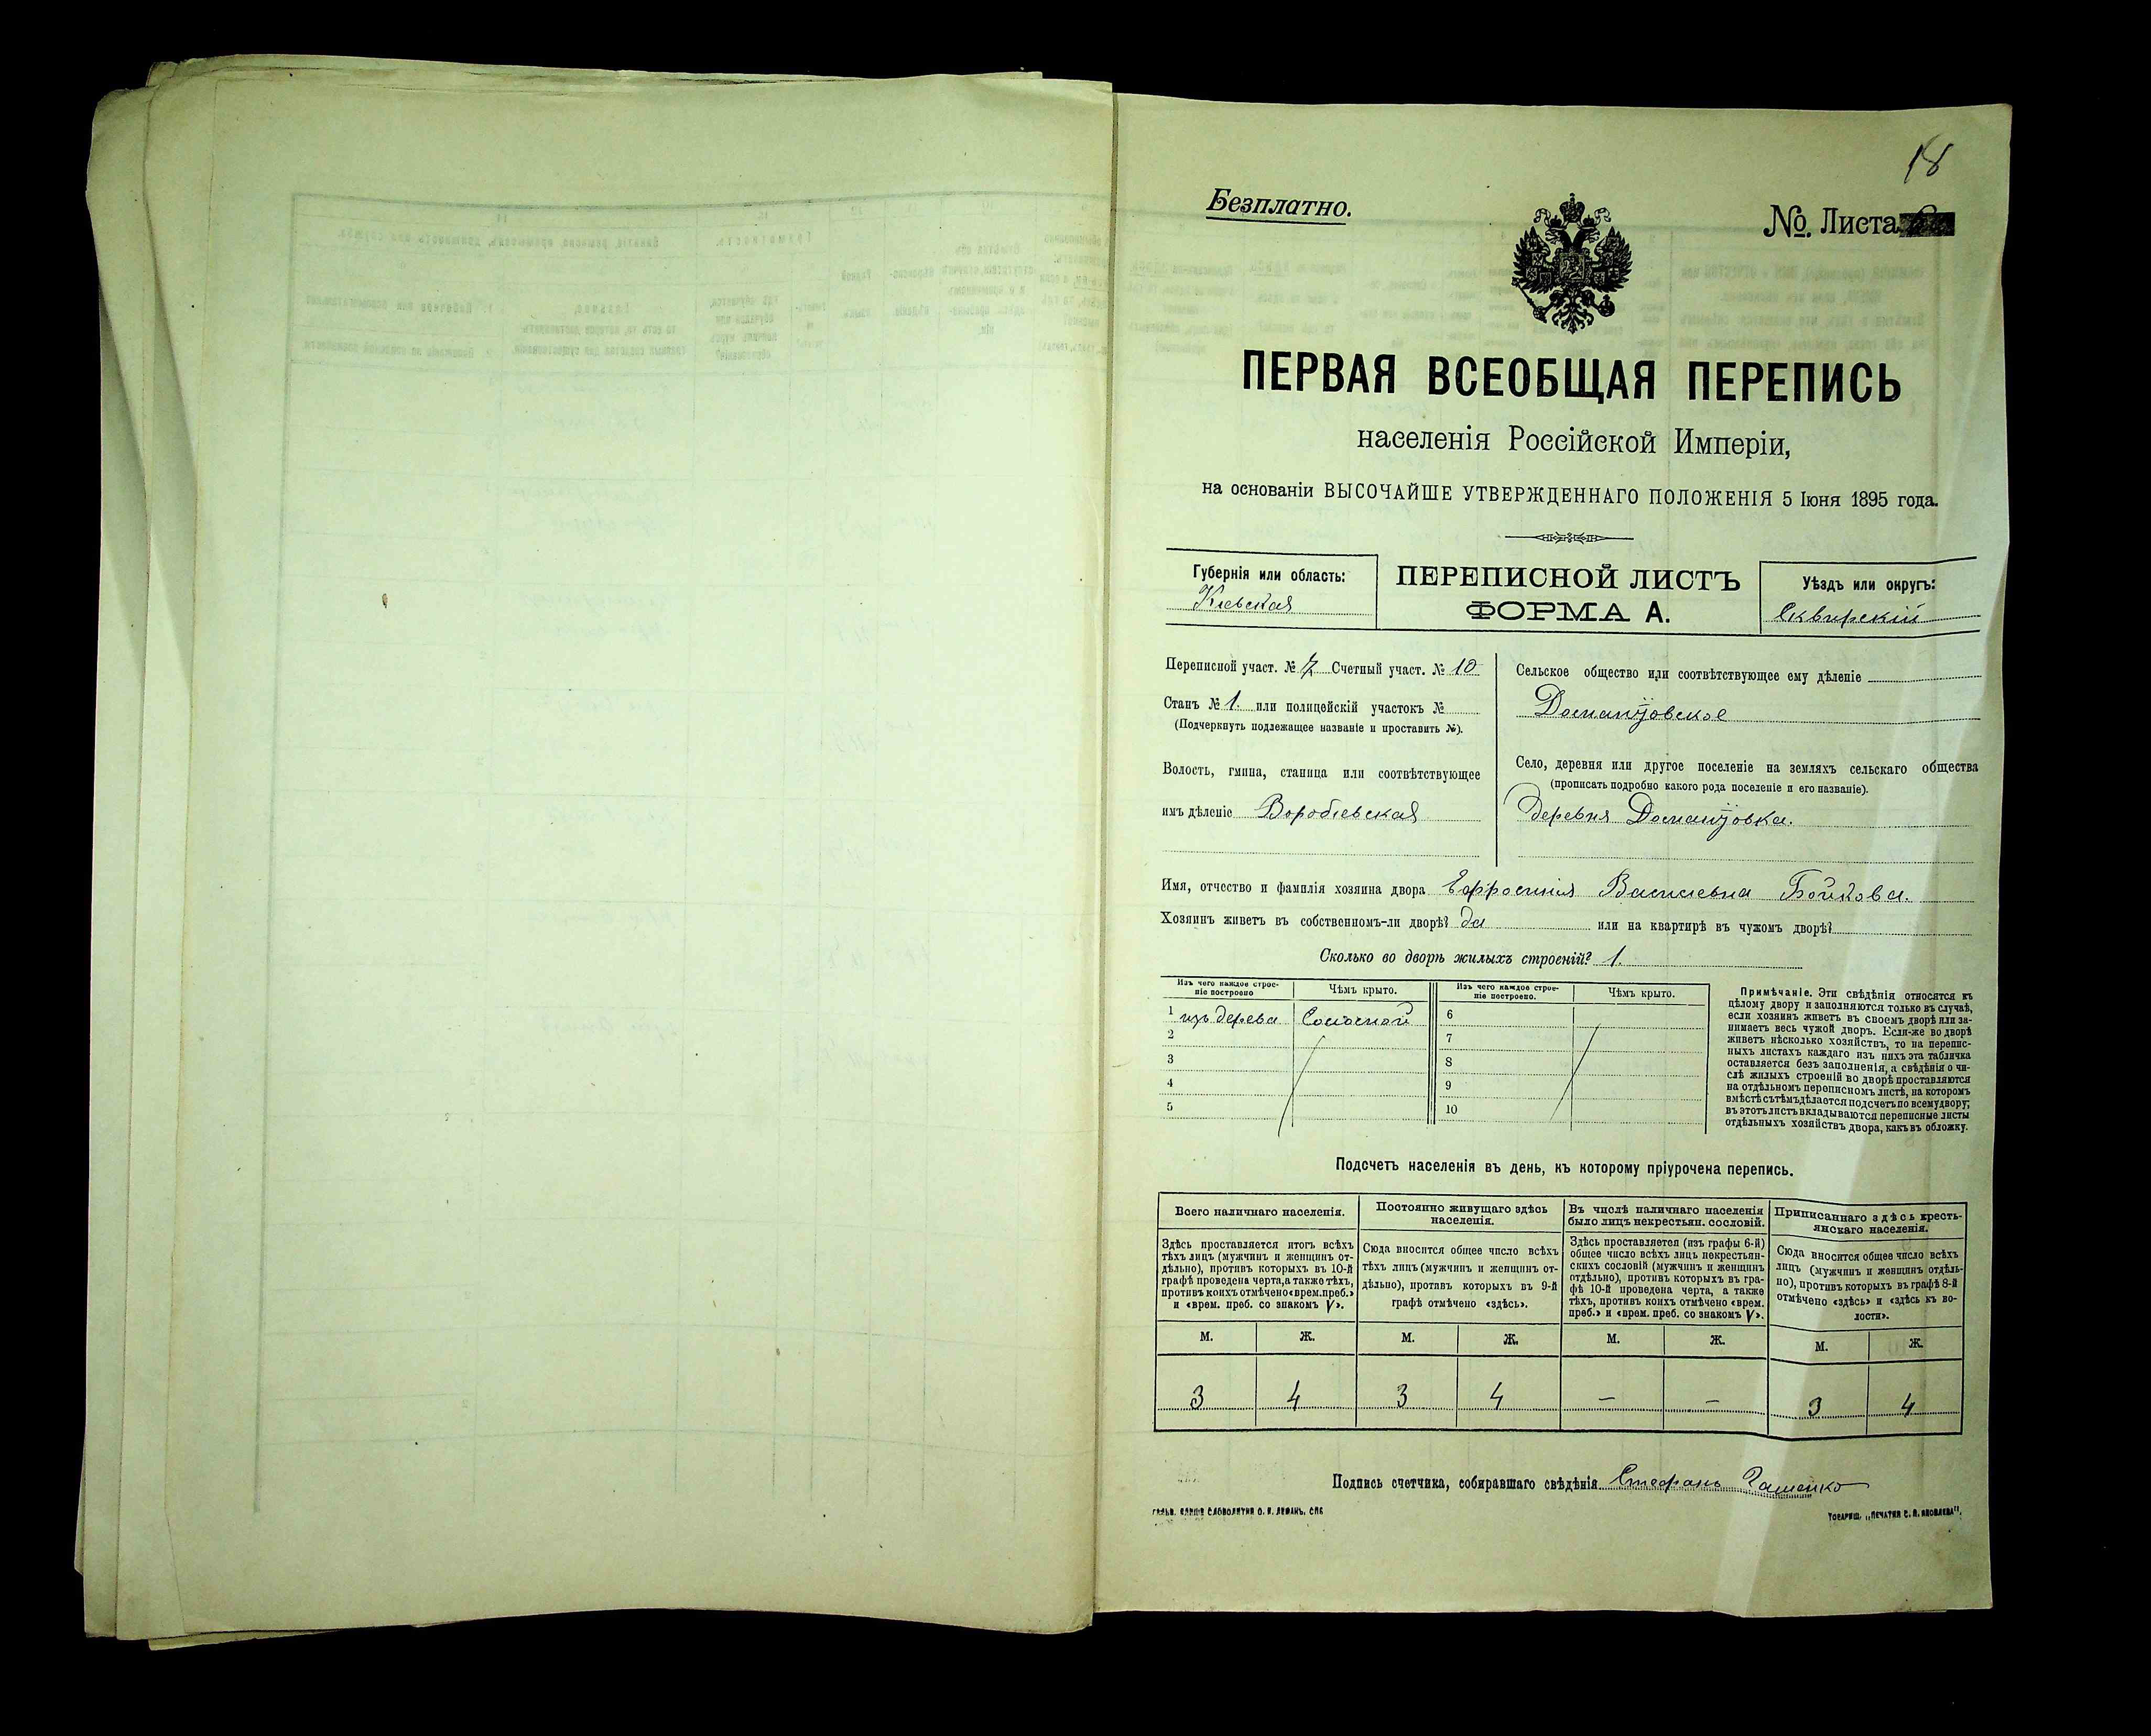 18
Безплатно.
№. Листа
ПЕРВАЯ ВСЕОБЩАЯ ПЕРЕПИСЬ
населенія Россійской Имперіи,
на основаніи ВЫСОЧАЙШЕ УТВЕРЖДЕННАГО ПОЛОЖЕНІЯ 5 Іюня 1895 года.
Губернія или область:
Кіевская
ПЕРЕПИСНОЙ ЛИСТЪ
ФОРМА А.
Уѣздъ или округъ:
Сквирскій
Переписной участ. № 7 Счетный участ. № 10
Станъ № 1. или полицейскій участокъ №
(Подчеркнуть подлежащее названіе и проставить №).
Волость, гмина, станица или соотвѣтствующее
имъ дѣленіе Воробіевская
Сельское общество или соотвѣтствующее ему дѣленіе
Домантовское
Село, деревня или другое поселеніе на земляхъ сельскаго общества
(прописать подробно какого рода поселеніе и его названіе).
Деревня Домантовка.
Имя, отчество и фамилія хозяина двора Ефросинія Васильевна Бойкова.
Хозяинъ живетъ въ собственномъ-ли дворѣ? да или на квартирѣ въ чужомъ дворѣ?
Сколько во дворѣ жилыхъ строеній? 1.
Изъ чего каждое строе-
ніе построено
Чѣмъ крыто.
Изъ чего каждое строе-
ніе построено.
Чѣмъ крыто.
1 изъ дерева Соломой
2
3
4
5
6
7
8
9
10
Примѣчаніе. Эти свѣдѣнія относятся къ
цѣлому двору и заполняются только въ случаѣ,
если хозяинъ живетъ въ своемъ дворѣ или за-
нимаетъ весь чужой дворъ. Если-же во дворѣ
живетъ нѣсколько хозяйствъ, то на перепис-
ныхъ листахъ каждаго изъ нихъ эта табличка
оставляется безъ заполненія, а свѣдѣнія о чи-
слѣ жилыхъ строеній во дворѣ проставляются
на отдѣльномъ переписномъ листѣ, на которомъ
вмѣстѣ съ тѣмъ дѣлается подсчетъ по всему двору;
въ этотъ листъ вкладываются переписные листы
отдѣльныхъ хозяйствъ двора, какъ въ обложку.
Подсчетъ населенія въ день, къ которому пріурочена перепись.
Всего наличнаго населенія.
Здѣсь проставляется итогъ всѣхъ
тѣхъ лицъ (мужчинъ и женщинъ от-
дѣльно), противъ которыхъ въ 10-й
графѣ проведена черта, а также тѣхъ,
противъ коихъ отмѣчено «врем. преб.»
и «врем. преб. со знакомъ V».
Постоянно живущаго здѣсь
населенія.
Сюда вносится общее число всѣхъ
тѣхъ лицъ (мужчинъ и женщинъ от-
дѣльно), противъ которыхъ въ 9-й
графѣ отмѣчено «здѣсь».
Въ числѣ наличнаго населенія
было лицъ некрестьян. сословій.
Здѣсь проставляется (изъ графы 6-й)
общее число всѣхъ лицъ некрестьян-
скихъ сословій (мужчинъ и женщинъ
отдѣльно), противъ которыхъ въ гра-
фѣ 10-й проведена черта, а также
тѣхъ, противъ коихъ отмѣчено «врем.
преб.» и «врем. преб. со знакомъ V».
Приписаннаго здѣсь кресть-
янскаго населенія.
Сюда вносится общее число всѣхъ
лицъ (мужчинъ и женщинъ отдѣль-
но), противъ которыхъ въ графѣ 8-й
отмѣчено «здѣсь» и «здѣсь къ во-
лости».
М. Ж. М. Ж. М. Ж. М. Ж.
3 4 3 4 — — 3 4
Подпись счетчика, собиравшаго свѣдѣнія Стефанъ
СЛОВОЛИТНЯ О. И. ЛЕМАНЪ. СПБ
ТОВАРИЩ. „ПЕЧАТНЯ С. П. ЯКОВЛЕВА“.